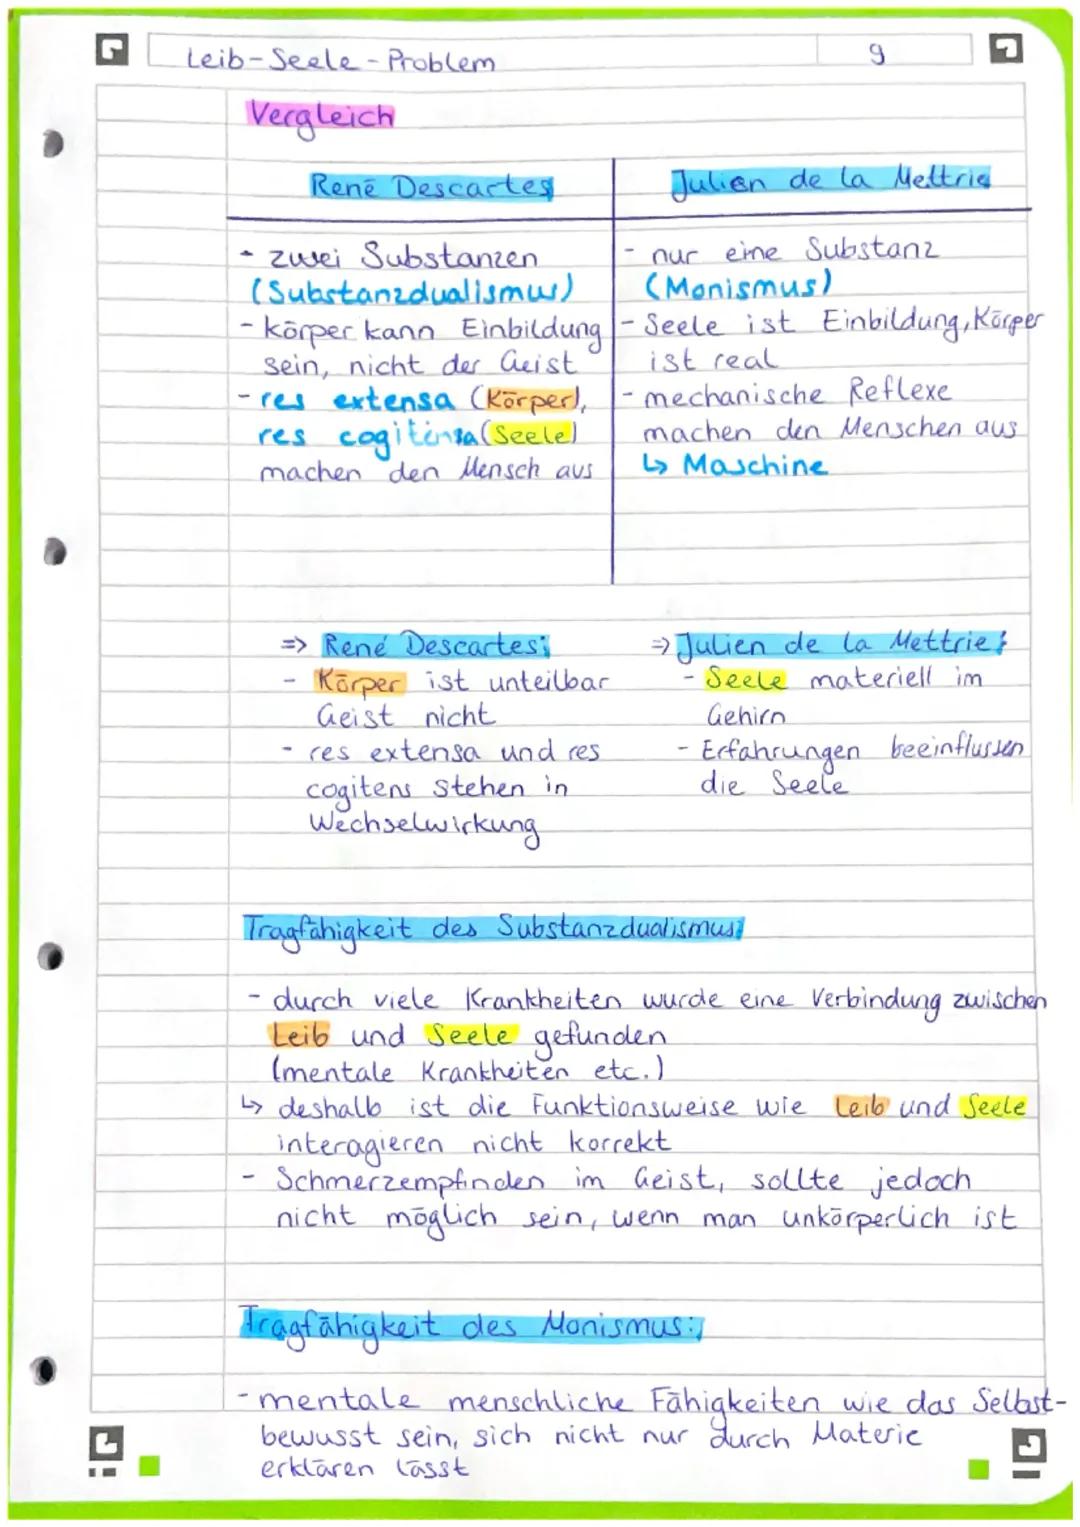 Leib-Seele-Problem
9
Vergleich
René Descartes
Julien de la Mettrie
- zwei Substanzen
(Substanzdualismus)
- Körper kann Einbildung
sein, nicht der Geist
- res extensa (Körper),
res cogitensa (Seele)
machen den Mensch aus
- nur eine Substanz
(Monismus)
- Seele ist Einbildung, Körper
ist real
- mechanische Reflexe
machen den Menschen aus
↳ Maschine
=> René Descartes:
- Körper ist unteilbar
Geist nicht
- res extensa und res
cogitens stehen in
Wechselwirkung
=> Julien de la Mettrie:
- Seele materiell im
Gehirn
- Erfahrungen beeinflussen
die Seele
Tragfähigkeit des Substanzdualismus:
- durch viele Krankheiten wurde eine Verbindung zwischen
Leib und Seele gefunden
(mentale Krankheiten etc.)
↳ deshalb ist die Funktionsweise wie Leib und Seele
interagieren nicht korrekt
- Schmerzempfinden im Geist, sollte jedoch
nicht möglich sein, wenn man unkörperlich ist
Tragfähigkeit des Monismus:
- mentale menschliche Fähigkeiten wie das Selbst-
bewusst sein, sich nicht nur durch Materie
erklären lässt